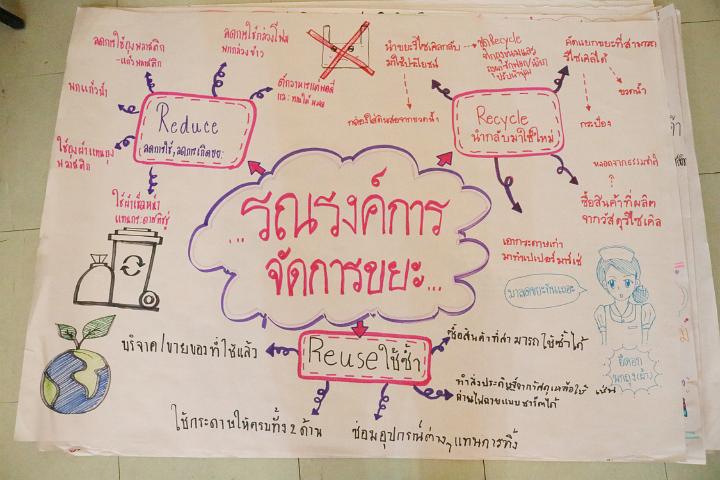 ...รณรงค์การ
จัดการขยะ...
Reduce
ลดการใช้,ลดการเกิดขยะ
ลดการใช้ถุงพลาสติก
-แก้วพลาสติก
ลดการใช้กล่องโฟม
พกกล่องข้าว
พกแก้วน้ำ
ใช้ถุงผ้าแทนถุง
พลาสติก
ใช้ผ้าเช็ดหน้า
แทนกระดาษทิชชู่
ตักอาหารแต่พอดี
และทานให้หมด
Recycle
นำกลับมาใช้ใหม่
นำขยะรีไซเคิลกลับ
มาใช้ประโยชน์
กล่องใส่ดินสอจากขวดน้ำ
ชุดRecycle
คัดแยกขยะที่สามารถ
รีไซเคิลได้
ขวดน้ำ
กระป๋อง
หลอดจากธรรมชาติ
ซื้อสินค้าที่ผลิต
จากวัสดุรีไซเคิล
เอากระดาษเก่า
มาทำเปเปอร์มาร์เช่
มาลดขยะกันเถอะ
Reuse ใช้ซ้ำ
บริจาค/ขายของที่ใช้แล้ว
ใช้กระดาษให้ครบทั้ง 2 ด้าน
ซ่อมอุปกรณ์ต่างๆแทนการทิ้ง
ซื้อสินค้าที่สามารถใช้ซ้ำได้
ทำสิ่งประดิษฐ์จากวัสดุเหลือใช้ เช่น
ถ่านไฟฉายแบบชาร์ตได้